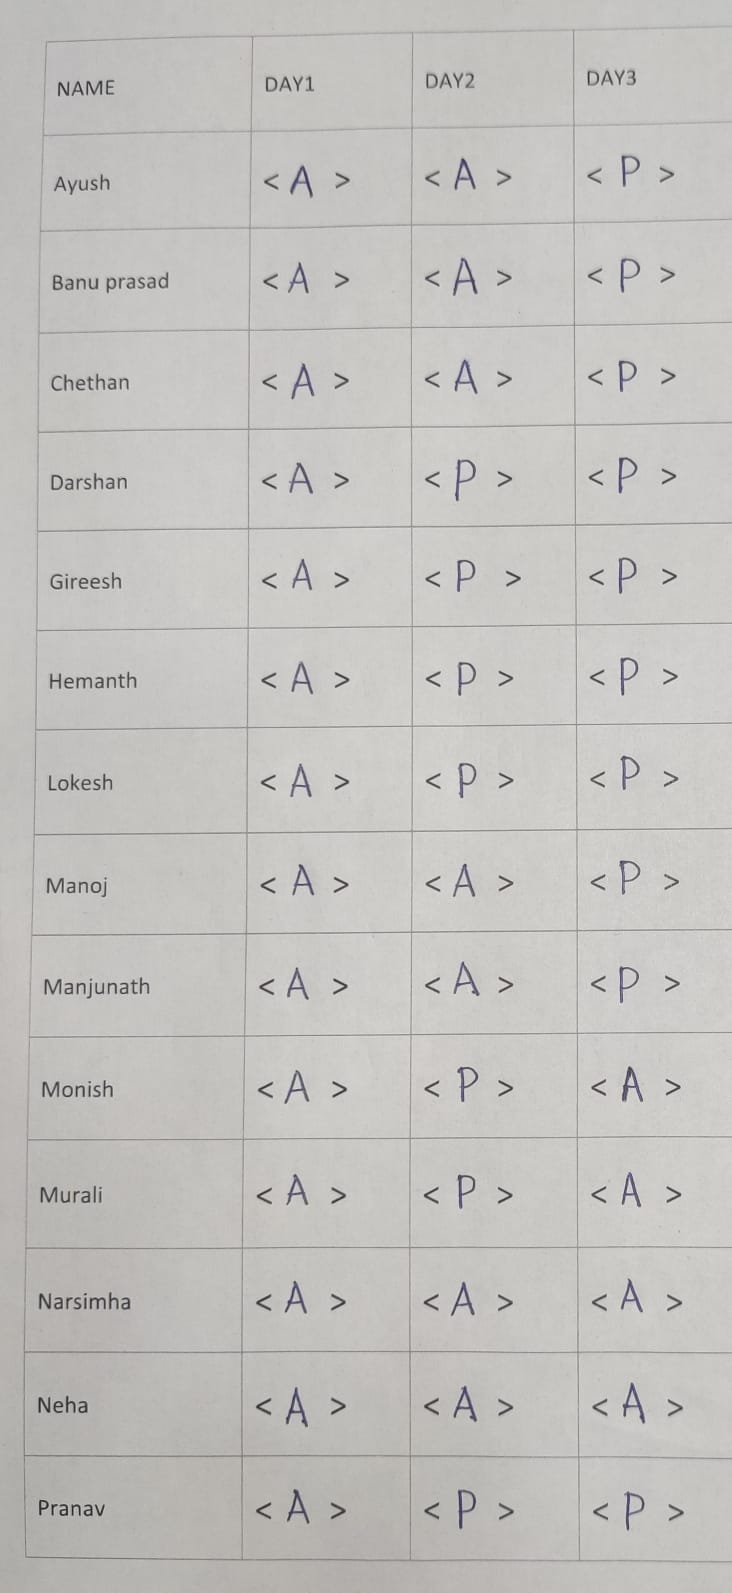 NAME DAY1 DAY2 DAY3
Ayush < A > < A > < P >
Banu prasad < A > < A > < P >
Chethan < A > < A > < P >
Darshan < A > < P > < P >
Gireesh < A > < P > < P >
Hemanth < A > < P > < P >
Lokesh < A > < P > < P >
Manoj < A > < A > < P >
Manjunath < A > < A > < P >
Monish < A > < P > < A >
Murali < A > < P > < A >
Narsimha < A > < A > < A >
Neha < A > < A > < A >
Pranav < A > < P > < P >